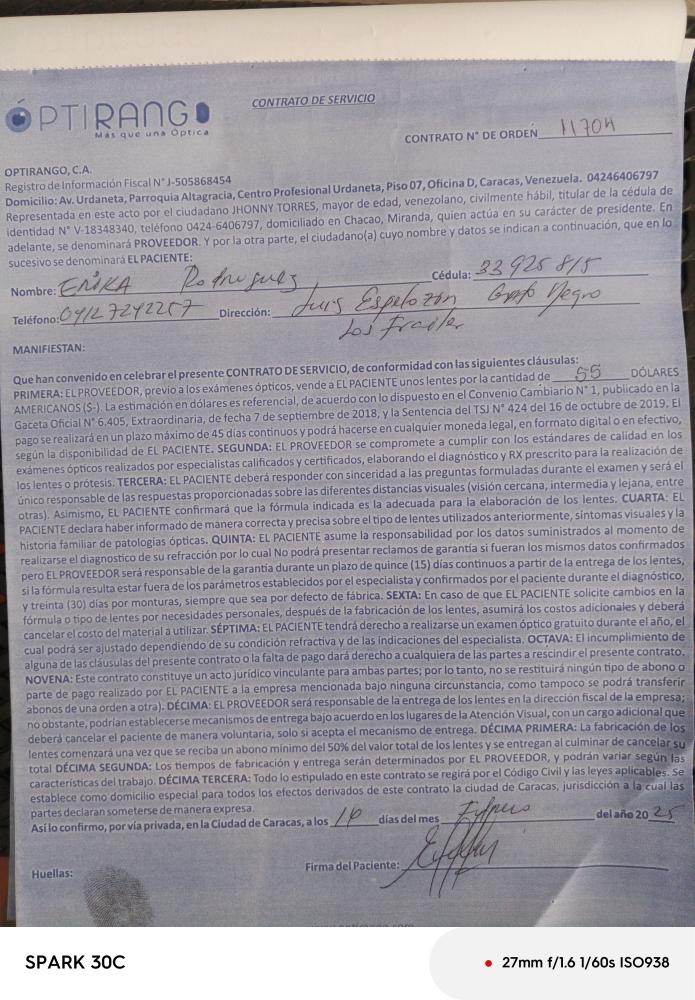 ÓPTIRANGO
Más que una Óptica
CONTRATO DE SERVICIO
CONTRATO N° DE ORDEN 11704
OPTIRANGO, C.A.
Registro de Información Fiscal N° J-505868454
Domicilio: Av. Urdaneta, Parroquia Altagracia, Centro Profesional Urdaneta, Piso 07, Oficina D, Caracas, Venezuela. 04246406797
Representada en este acto por el ciudadano JHONNY TORRES, mayor de edad, venezolano, civilmente hábil, titular de la cédula de
identidad N° V-18348340, teléfono 0424-6406797, domiciliado en Chacao, Miranda, quien actúa en su carácter de presidente. En
adelante, se denominará PROVEEDOR. Y por la otra parte, el ciudadano(a) cuyo nombre y datos se indican a continuación, que en lo
sucesivo se denominará EL PACIENTE:
Nombre: ERIKA Rodriguez Cédula: 33925815
Teléfono: 04127242257 Dirección: Luis Negro
Los Frailes
MANIFIESTAN:
Que han convenido en celebrar el presente CONTRATO DE SERVICIO, de conformidad con las siguientes cláusulas:
PRIMERA: EL PROVEEDOR, previo a los exámenes ópticos, vende a EL PACIENTE unos lentes por la cantidad de 55 DÓLARES
AMERICANOS (S-). La estimación en dólares es referencial, de acuerdo con lo dispuesto en el Convenio Cambiario N° 1, publicado en la
Gaceta Oficial N° 6.405, Extraordinaria, de fecha 7 de septiembre de 2018, y la Sentencia del TSJ N° 424 del 16 de octubre de 2019. El
pago se realizará en un plazo máximo de 45 días continuos y podrá hacerse en cualquier moneda legal, en formato digital o en efectivo,
según la disponibilidad de EL PACIENTE. SEGUNDA: EL PROVEEDOR se compromete a cumplir con los estándares de calidad en los
exámenes ópticos realizados por especialistas calificados y certificados, elaborando el diagnóstico y RX prescrito para la realización de
los lentes o prótesis. TERCERA: EL PACIENTE deberá responder con sinceridad a las preguntas formuladas durante el examen y será el
único responsable de las respuestas proporcionadas sobre las diferentes distancias visuales (visión cercana, intermedia y lejana, entre
otras). Asimismo, EL PACIENTE confirmará que la fórmula indicada es la adecuada para la elaboración de los lentes. CUARTA: EL
PACIENTE declara haber informado de manera correcta y precisa sobre el tipo de lentes utilizados anteriormente, síntomas visuales y la
historia familiar de patologías ópticas. QUINTA: EL PACIENTE asume la responsabilidad por los datos suministrados al momento de
realizarse el diagnostico de su refracción por lo cual No podrá presentar reclamos de garantía si fueran los mismos datos confirmados
pero EL PROVEEDOR será responsable de la garantía durante un plazo de quince (15) días continuos a partir de la entrega de los lentes,
si la fórmula resulta estar fuera de los parámetros establecidos por el especialista y confirmados por el paciente durante el diagnóstico,
y treinta (30) días por monturas, siempre que sea por defecto de fábrica. SEXTA: En caso de que EL PACIENTE solicite cambios en la
fórmula o tipo de lentes por necesidades personales, después de la fabricación de los lentes, asumirá los costos adicionales y deberá
cancelar el costo del material a utilizar. SÉPTIMA: EL PACIENTE tendrá derecho a realizarse un examen óptico gratuito durante el año, el
cual podrá ser ajustado dependiendo de su condición refractiva y de las indicaciones del especialista. OCTAVA: El incumplimiento de
alguna de las cláusulas del presente contrato o la falta de pago dará derecho a cualquiera de las partes a rescindir el presente contrato.
NOVENA: Este contrato constituye un acto jurídico vinculante para ambas partes; por lo tanto, no se restituirá ningún tipo de abono o
parte de pago realizado por EL PACIENTE a la empresa mencionada bajo ninguna circunstancia, como tampoco se podrá transferir
abonos de una orden a otra). DÉCIMA: EL PROVEEDOR será responsable de la entrega de los lentes en la dirección fiscal de la empresa;
no obstante, podrían establecerse mecanismos de entrega bajo acuerdo en los lugares de la Atención Visual, con un cargo adicional que
deberá cancelar el paciente de manera voluntaria, solo si acepta el mecanismo de entrega. DÉCIMA PRIMERA: La fabricación de los
lentes comenzará una vez que se reciba un abono mínimo del 50% del valor total de los lentes y se entregan al culminar de cancelar su
total DÉCIMA SEGUNDA: Los tiempos de fabricación y entrega serán determinados por EL PROVEEDOR, y podrán variar según las
características del trabajo. DÉCIMA TERCERA: Todo lo estipulado en este contrato se regirá por el Código Civil y las leyes aplicables. Se
establece como domicilio especial para todos los efectos derivados de este contrato la ciudad de Caracas, jurisdicción a la cual las
partes declaran someterse de manera expresa.
Así lo confirmo, por vía privada, en la Ciudad de Caracas, a los días del mes del año 20 25
Huellas:
Firma del Paciente:
SPARK 30C
27mm f/1.6 1/60s ISO938